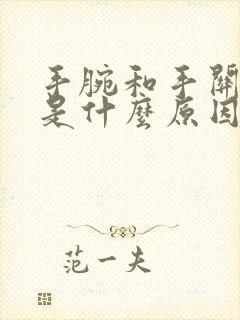 手腕和手關
是什麼原因
范一夫